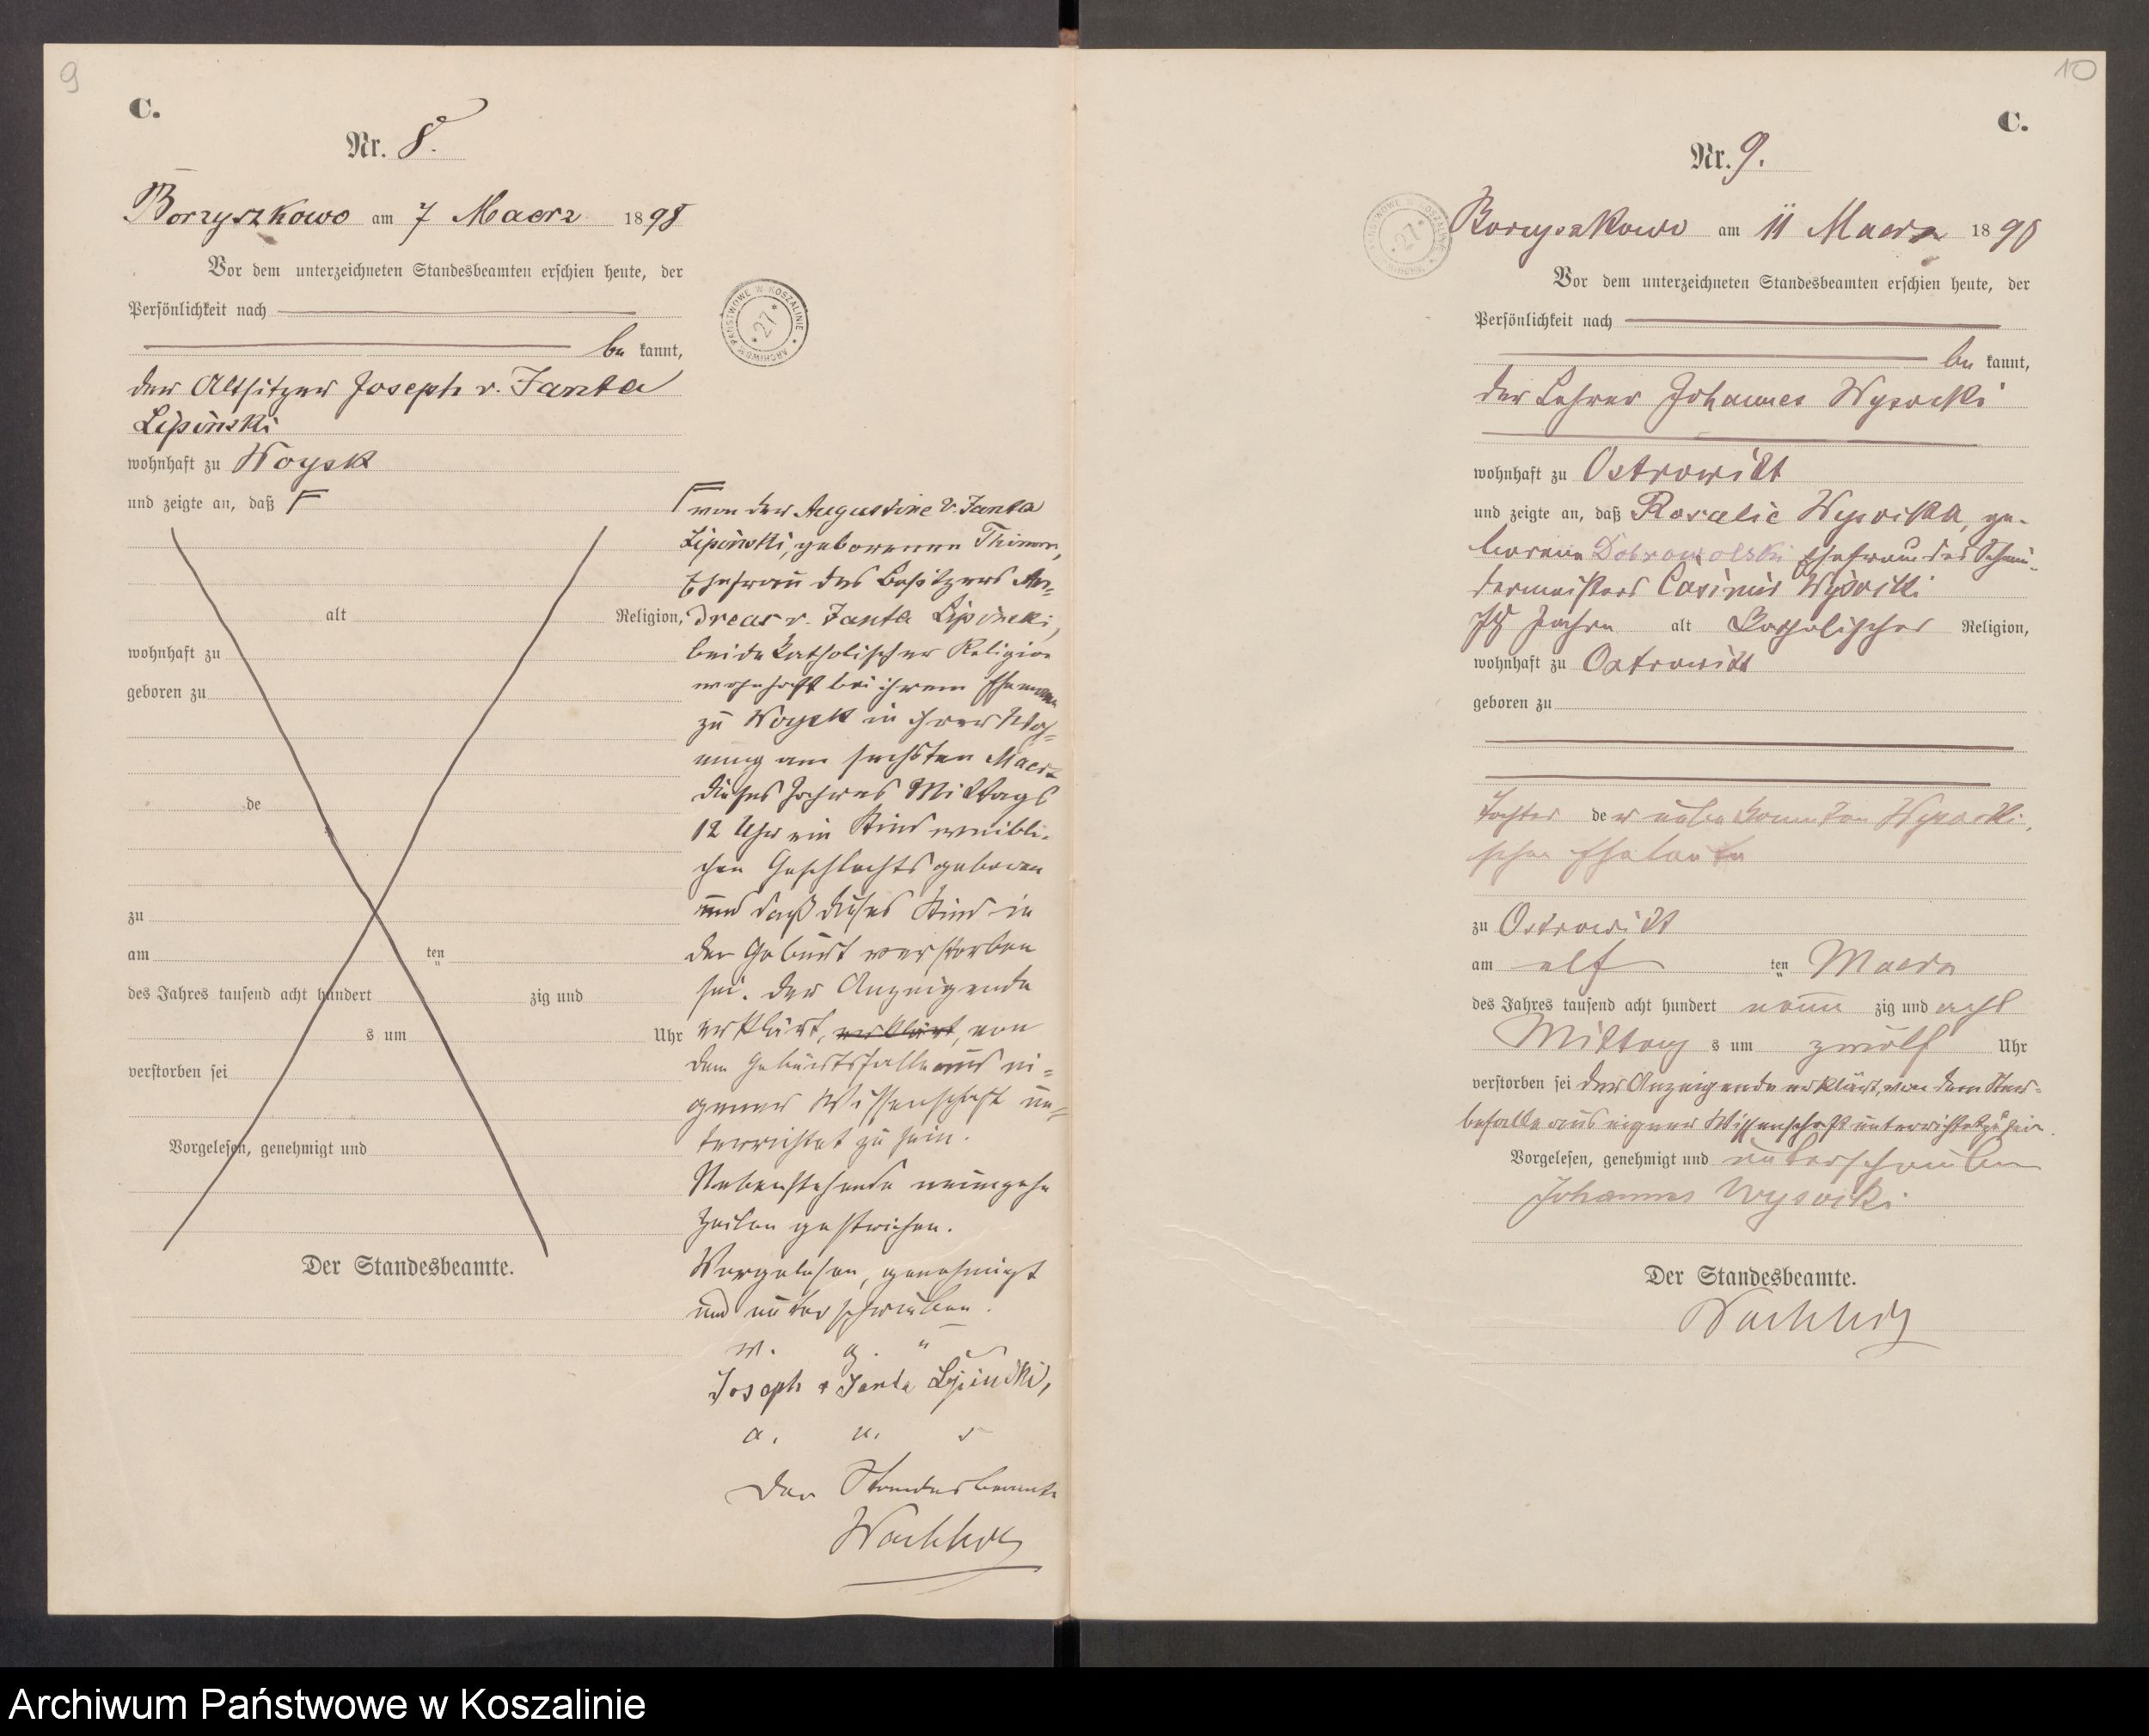 9
C.
Nr. 8.
Borzyszkowo am 7 Maerz 1898
Vor dem unterzeichneten Standesbeamten erschien heute, der
Persönlichkeit nach
be kannt,
der Altsitzer Joseph v. Janta
Lipinski
wohnhaft zu Woysk
und zeigte an, daß
alt Religion,
wohnhaft zu
geboren zu
de
zu
am ten
des Jahres tausend acht hundert zig und
s um Uhr
verstorben sei
Vorgelesen, genehmigt und
Der Standesbeamte.
ARCHIWUM PAŃSTWOWE W KOSZALINIE * 27 *
von der Augustine v. Janta
Lipinski, geborenen
Ehefrau des Besitzers An=
dreas v. Janta Lipinski,
beide katholischer Religion
wohnhaft bei ihrem Ehemann
zu Woysk in ihrer Woh=
nung am sechsten Maerz
dieses Jahres Mittags
12 Uhr ein Kind weibli-
chen Geschlechts geboren
und daß dieses Kind in
der Geburt verstorben
sei. Der Anzeigende
erklärt, erklärt, von
dem Geburtsfalle aus ei=
gener Wissenschaft un=
terrichtet zu sein.
Nebenstehende neunzehn
Zeilen gestrichen.
Vorgelesen, genehmigt
und unterschrieben.
v. g. u
Joseph v Janta Lipinski,
a. u. s
Der Standesbeamte
10
C.
Nr. 9.
ARCHIWUM PAŃSTWOWE W KOSZALINIE * 27 *
Borzyszkowo am 11 Maerz 1898
Vor dem unterzeichneten Standesbeamten erschien heute, der
Persönlichkeit nach
be kannt,
der Lehrer Johannes Wysocki
wohnhaft zu Ostrowitt
und zeigte an, daß Rosalie Wysocka, ge-
borene Dobrowolski Ehefrau des Schnei-
dermeisters Casimir Wysocki
Jahre alt Katholischer Religion,
wohnhaft zu Ostrowitt
geboren zu
Tochter der Wysocki-
schen Eheleute
zu Ostrowitt
am elf ten Maerz
des Jahres tausend acht hundert neun zig und acht
Mittag s um zwölf Uhr
verstorben sei Der Anzeigende erklärt, von dem Ster-
befalle aus eigener Wissenschaft unterrichtet zu sein.
Vorgelesen, genehmigt und unterschrieben
Johannes Wysocki
Der Standesbeamte.
Archiwum Państwowe w Koszalinie